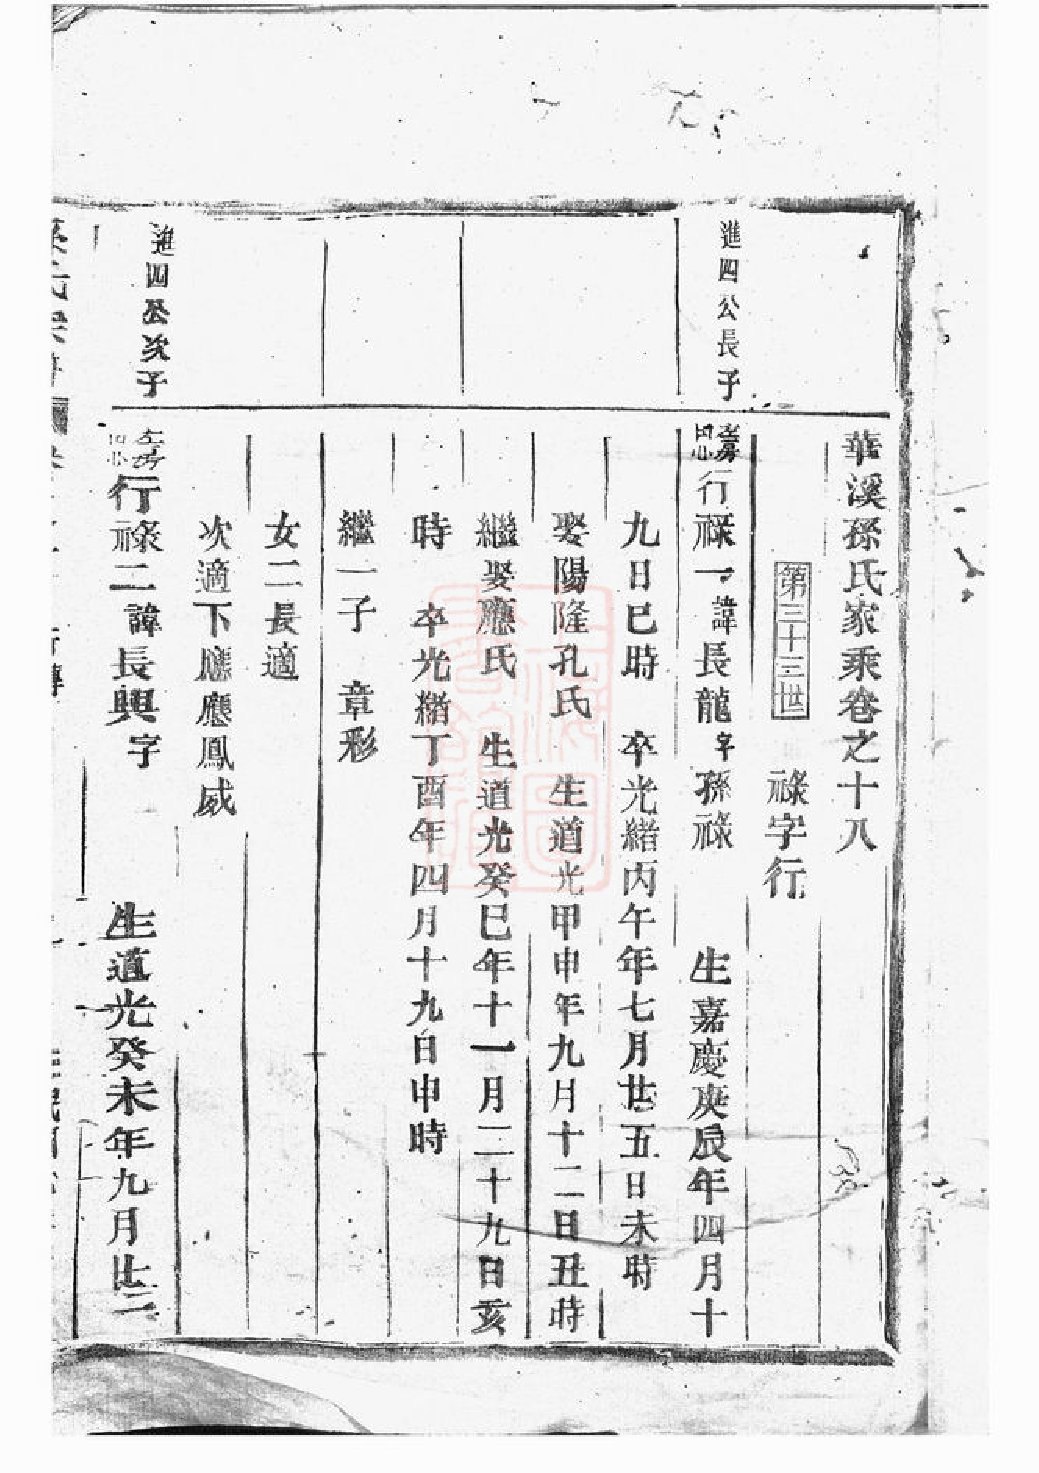 華溪孫氏家乘卷之十八
第三十三世 祿字行
進四公長子
行祿一諱長龍字孫祿 生嘉慶庚辰年四月十
九日巳時 卒光緒丙午年七月廿五日未時
娶陽隆孔氏 生道光甲申年九月十二日丑時
繼娶應氏 生道光癸巳年十一月二十九日亥
時 卒光緒丁酉年四月十九日申時
繼一子 章彩
女二長適
次適下應應鳳威
進四公次子
行祿二諱長興字 生道光癸未年九月廿二